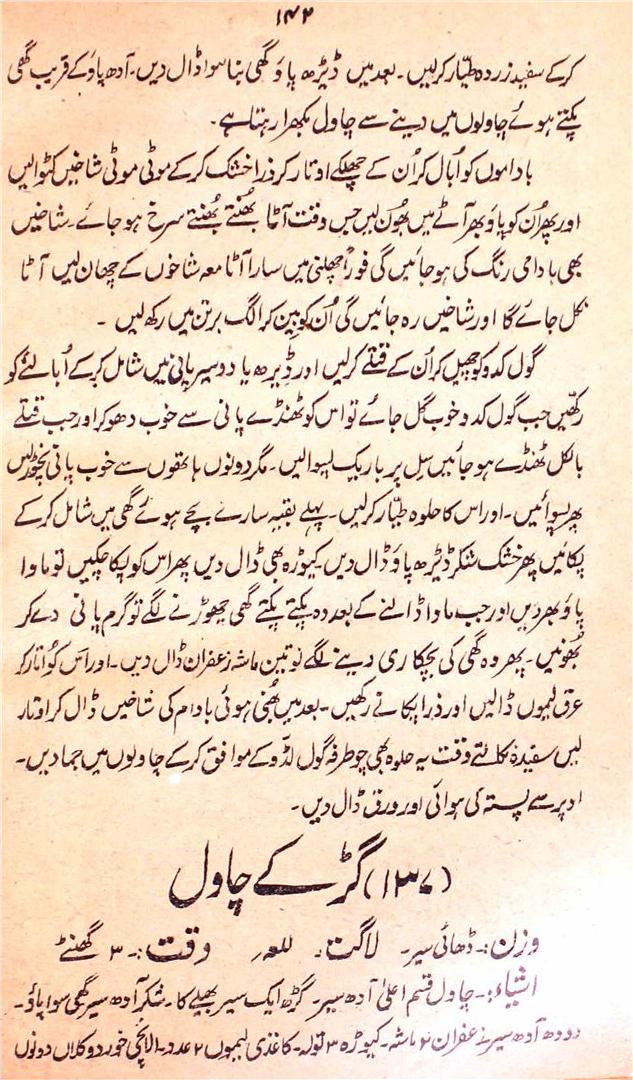 ۱۴۲
کرکے سفید زردہ طیّار کرلیں۔ بعد میں ڈیڑھ پاؤ گھی بنا ہوا ڈال دیں۔ آدھ پاؤ کے قریب گھی
پکتے ہوئے چاولوں میں دینے سے چاول بکھرا رہتا ہے۔
باداموں کو اُبال کر اُن کے چھلکے اوتار کر ذرا خشک کرکے موٹی موٹی شاخیں کٹوالیں
اور پھر اُن کو پاؤ بھر آٹے میں بھُون لیں جس وقت آٹا بھُنتے بھُنتے سرخ ہو جائے۔ شاخیں
بھی بادامی رنگ کی ہو جائیں گی فوراً چھلنی میں سارا آٹا معہ شاخوں کے چھان لیں آٹا
نکل جائے گا اور شاخیں رہ جائیں گی اُن کو بین کر الگ برتن میں رکھ لیں ۔
گول کدو کو چھیل کر اُن کے قتلے کرلیں اور ڈیڑھ یا دو سیر پانی میں شامل کرکے اُبالنے کو
رکھیں جب گول کدو خوب گل جائے تو اس کو ٹھنڈے پانی سے خوب دھو کر اور جب قتلے
بالکل ٹھنڈے ہو جائیں سِل پر باریک پسوالیں۔ مگر دونوں ہاتھوں سے خوب پانی نچوڑ لیں
پھر پسوائیں۔ اور اس کا حلوہ طیّار کرلیں۔ پہلے بقیہ سارے بچے ہوئے گھی میں شامل کرکے
پکائیں پھر خشک شکر ڈیڑھ پاؤ ڈال دیں۔ کیوڑہ بھی ڈال دیں پھر اس کو پکا چکیں تو ماوا
پاؤ بھر دیں اور جب ماوا ڈالنے کے بعد وہ پکتے پکتے گھی چھوڑنے لگے تو گرم پانی دے کر
بھُونیں۔ پھر وہ گھی کی بچکاری دینے لگے تو تین ماشہ زعفران ڈال دیں۔ اور اس کو اُتار کر
عرق لیموں ڈالیں اور ذرا پکانے رکھیں۔ بعد میں بھُنی ہوئی بادام کی شاخیں ڈال کر اوتار
لیں سفیدہ نکالتے وقت یہ حلوہ بھی چوطرفہ گول لڈّو کے موافق کرکے چاولوں میں جما دیں۔
اوپر سے پستہ کی ہوائی اور ورق ڈال دیں۔
(۱۳۷) گڑ کے چاول
وزن:۔ ڈھائی سیر۔ لاگت: للعہ وقت:۔ ۳ گھنٹے
اشیاء:۔ چاول قسم اعلیٰ آدھ سیر۔ گڑھ ایک سیر بھیلے کا۔ شکر آدھ سیر گھی سوا پاؤ۔
دودھ آدھ سیر زعفران ۲ ماشہ۔ کیوڑہ ۳ تولہ۔ کاغذی لیموں ۲ عدد۔ الائچی خورد و کلاں دونوں